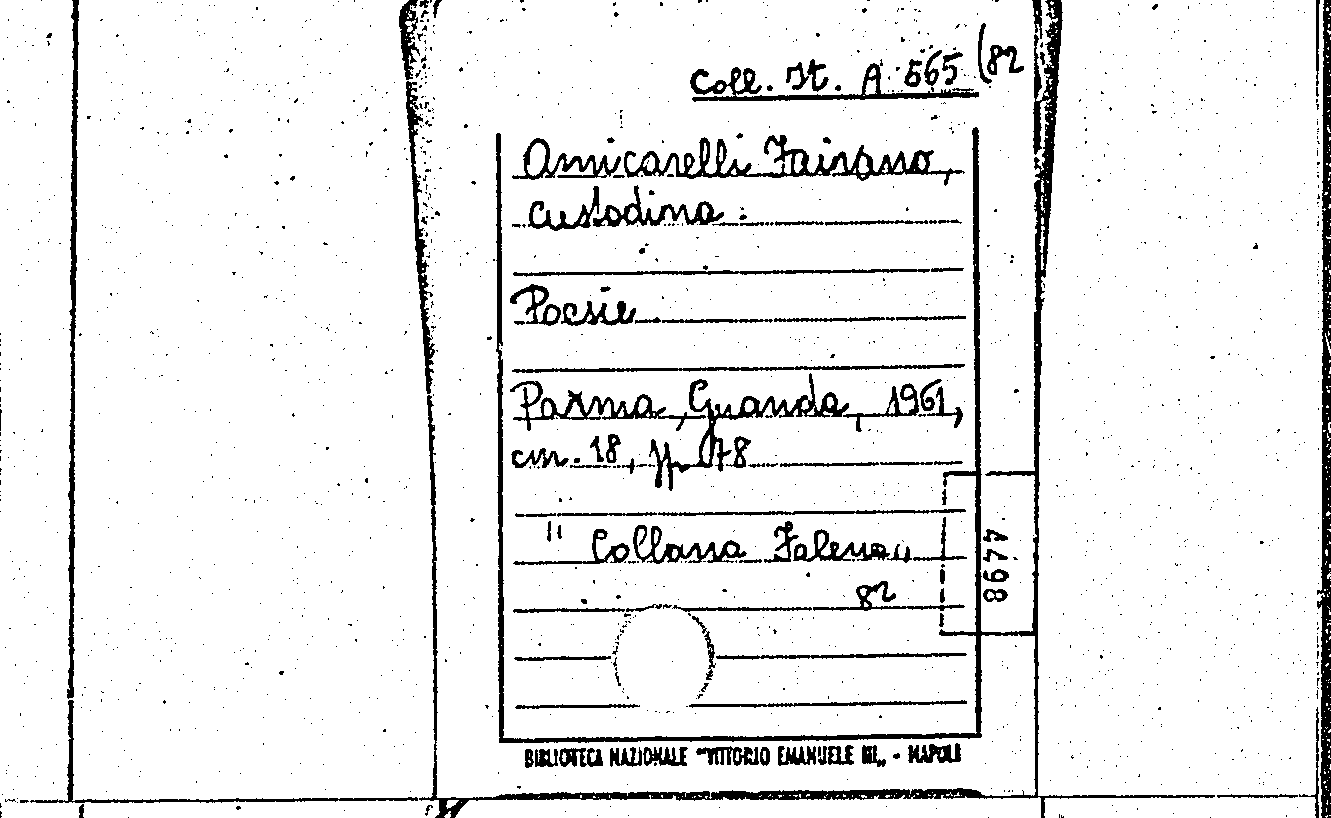 Coll. It. A 565 (82
Amicarelli Fairano,
Custodina.
Poesie.
Parma, Guanda, 1961,
cm. 18, pp. 78
"Collana Falena„
82
4498
BIBLIOTECA NAZIONALE "VITTORIO EMANUELE III„ - NAPOLI